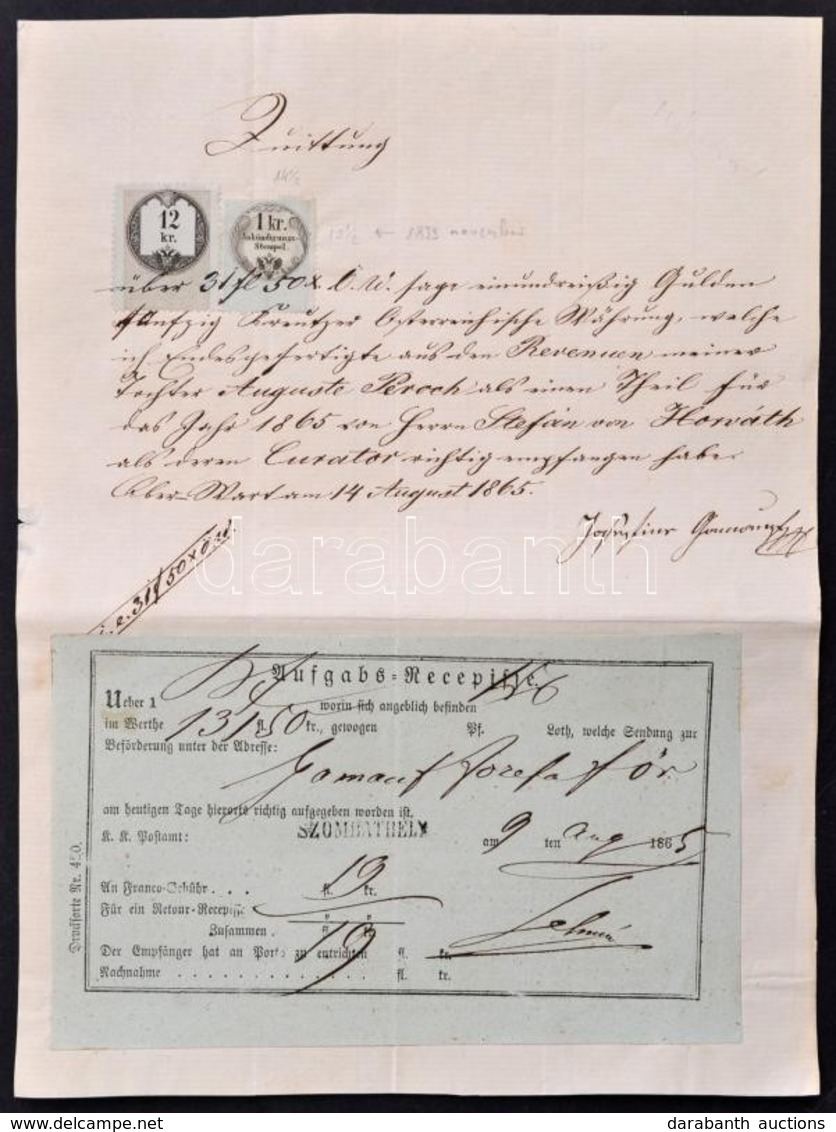 Quittung
14½
12
kr.
1 kr.
Ankündigungs-
Stempel.
13½ ← 1859 november
über 31 fl 50 x. Ö. W. sage einundreißig Gulden
fünfzig Kreutzer Österreichische Währung, welche
ich Endesgefertigte aus den Revenuen meiner
Tochter Auguste Peroch als einen Theil für
das Jahr 1865 von Herrn Stefán von Horváth
als deren Curator richtig empfangen habe.
Ober-Wart am 14 August 1865.
31 f 50 x ö. W.
darabanth
Aufgabs-Recepisse.
Ueber 1
woxin sich angeblich befinden
im Werthe 131 fl. 50 kr., gewogen Pf. Loth, welche Sendung zur
Beförderung unter der Adresse:
am heutigen Tage hierorts richtig aufgegeben worden ist.
K. K. Postamt: SZOMBATHELY am 9 ten Aug 1865
An Franco-Gebühr . . . fl. 19 kr.
Für ein Retour-Recepisse " "
Zusammen . fl. 19 kr.
Der Empfänger hat an Porto zu entrichten fl. kr.
Nachnahme . . . . . . . . . . . . . fl. kr.
Drucksorte Nr. 420.
darabanth-auctions.com
darabanth auctions